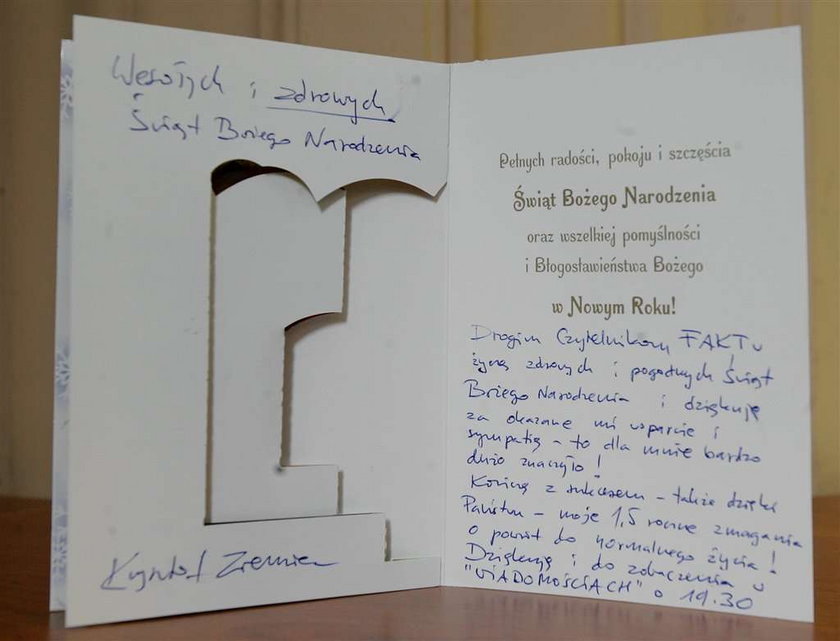 Wesołych i zdrowych
Świąt Bożego Narodzenia
Krzysztof Ziemiec
Pełnych radości, pokoju i szczęścia
Świąt Bożego Narodzenia
oraz wszelkiej pomyślności
i Błogosławieństwa Bożego
w Nowym Roku!
Drogim Czytelnikom FAKTu
życzę zdrowych i pogodnych Świąt
Bożego Narodzenia i dziękuję
za okazane mi wsparcie i
sympatię - to dla mnie bardzo
dużo znaczyło!
Kończę z sukcesem - także dzięki
Państwu - moje 1,5 roczne zmagania
o powrót do normalnego życia!
Dziękuję i do zobaczenia w
"WIADOMOŚCIACH" o 19.30